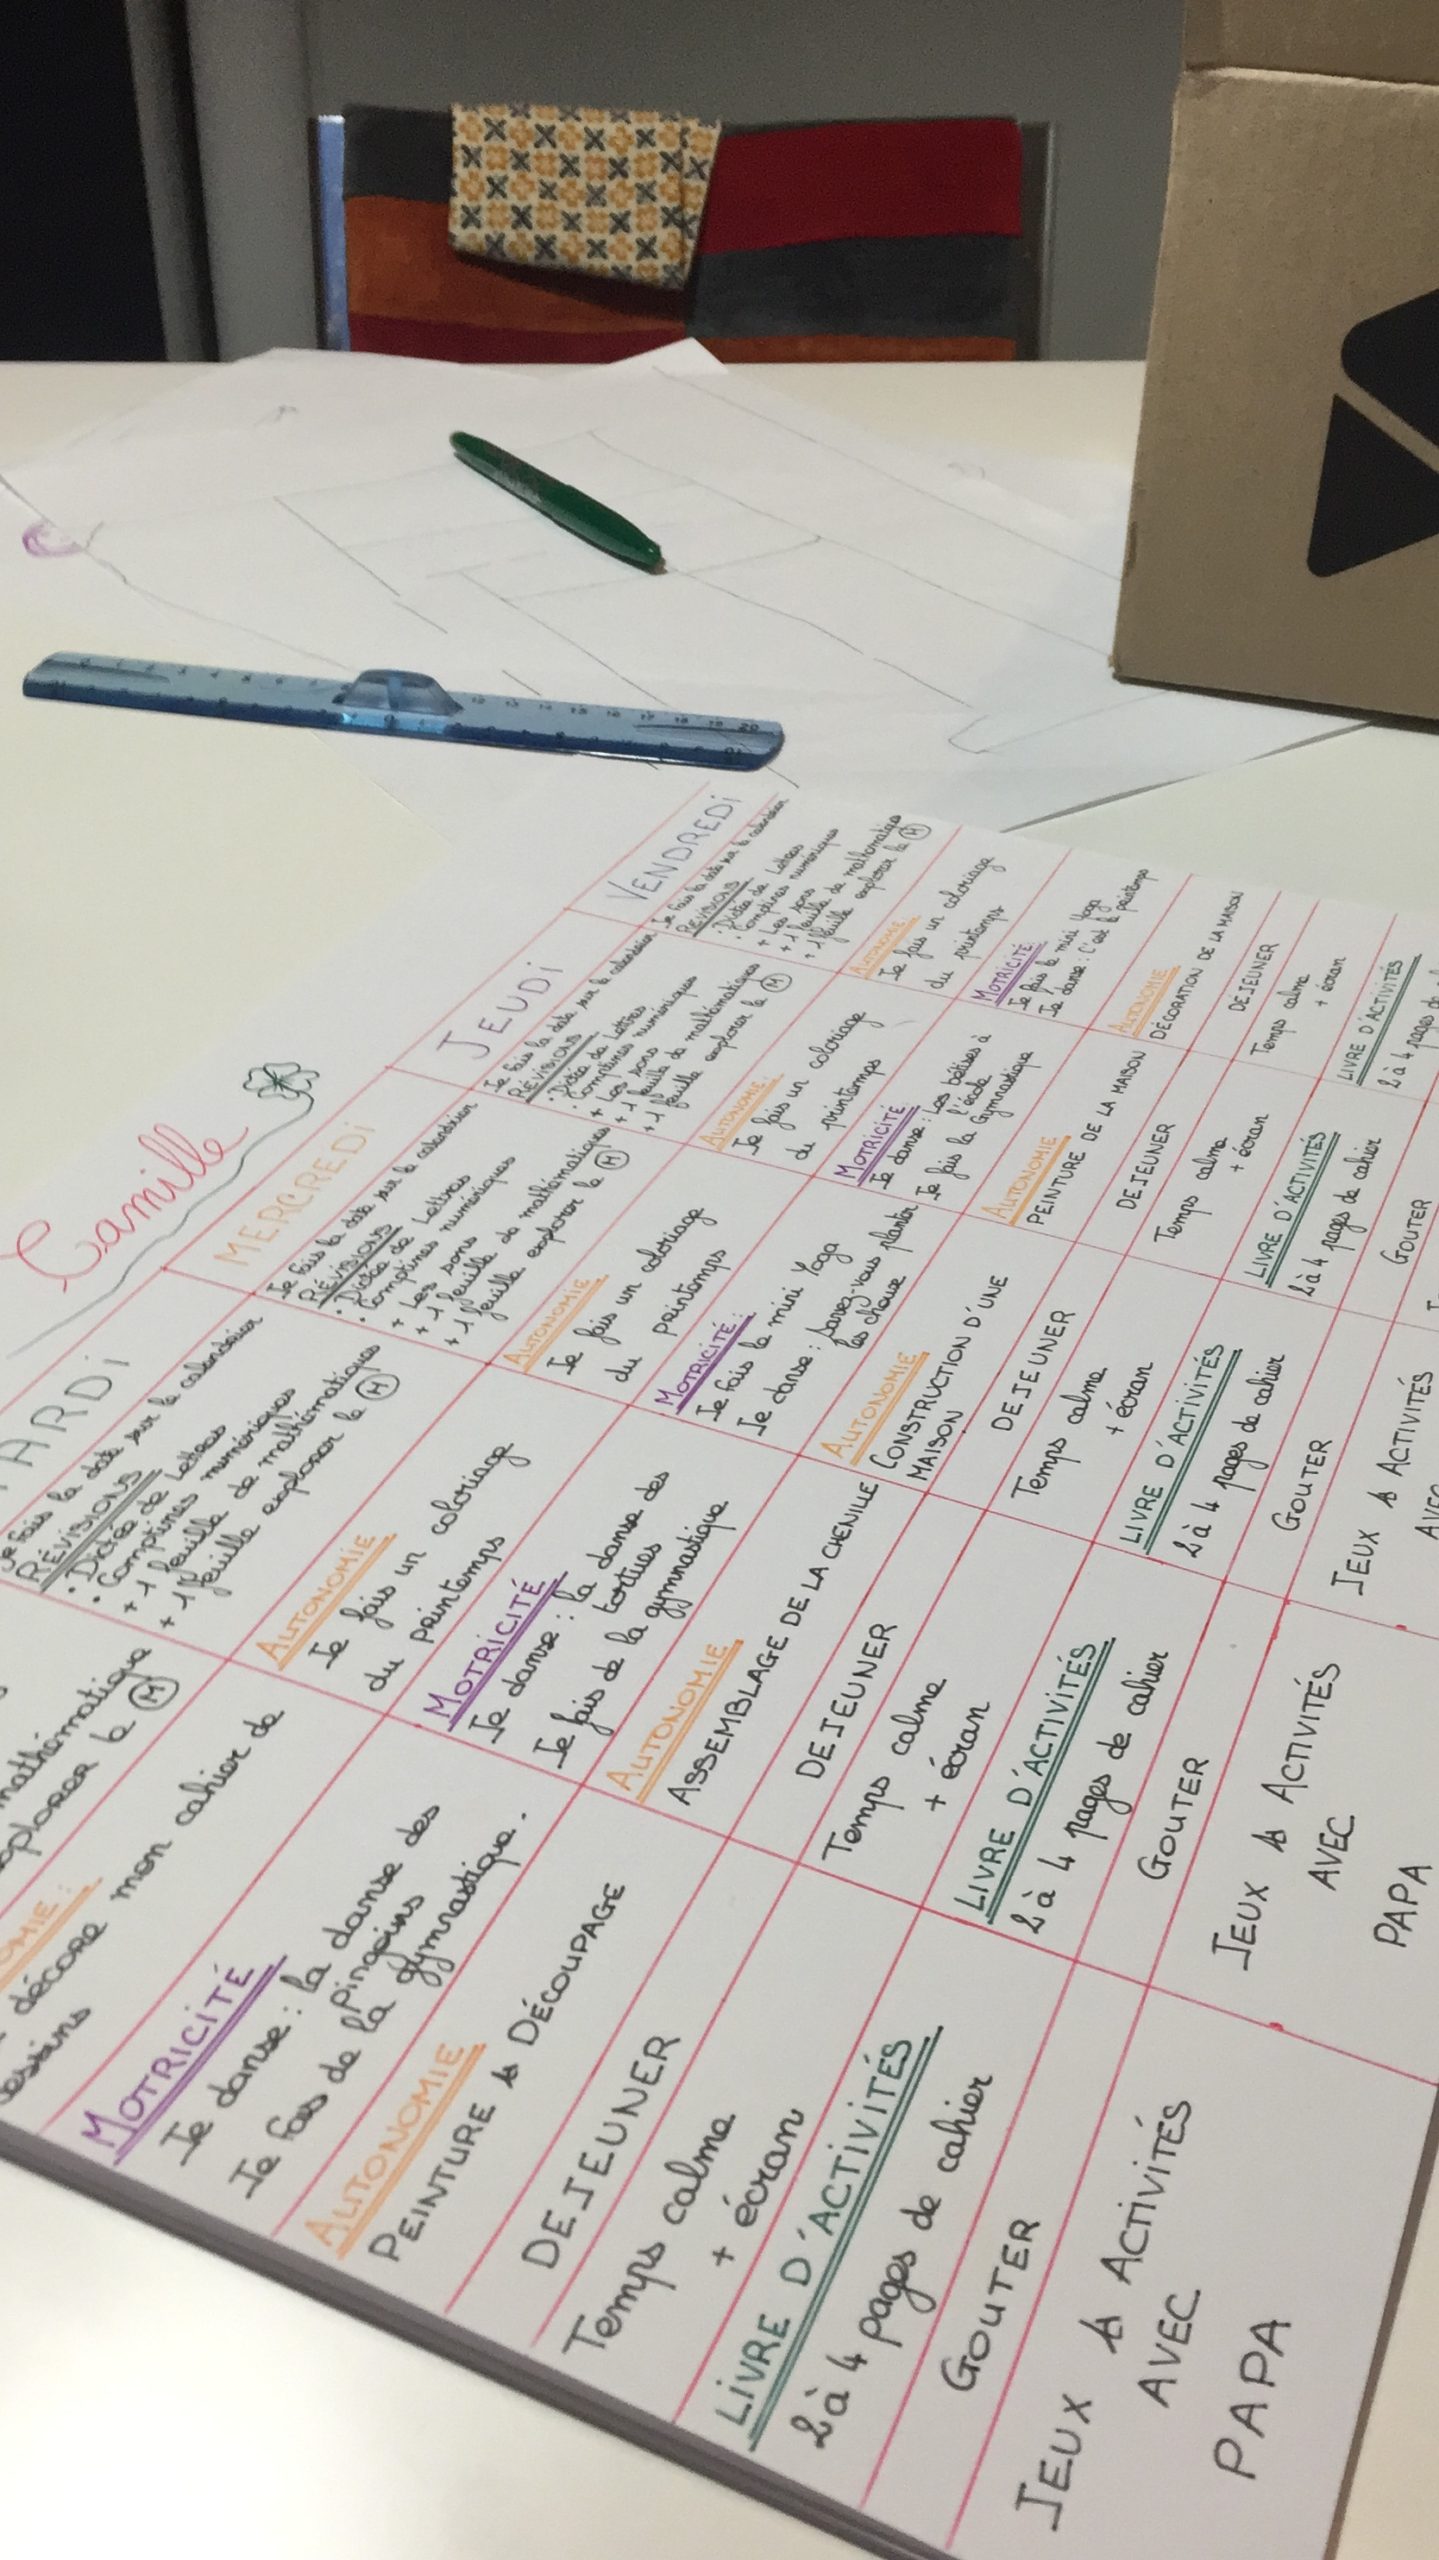 Camille
mathématique
explorer le M
décore mon cahier de
dessins
MOTRICITÉ
Je danse : la danse des
pingoins
Je fais de la gymnastique.
AUTONOMIE
PEINTURE & DÉCOUPAGE
DEJEUNER
Temps calme
+ écran
LIVRE D'ACTIVITÉS
2 à 4 pages de cahier
GOUTER
JEUX & ACTIVITÉS
AVEC
PAPA
ARDI
Je fais la date sur le calendrier
RÉVISIONS
• Dictée de Lettres
• Comptines numériques
+ 1 feuille de mathématiques
+ 1 feuille explorer le M
AUTONOMIE
Je fais un coloriage
du printemps
MOTRICITÉ
Je danse : la danse des
tortues
Je fais de la gymnastique
AUTONOMIE
ASSEMBLAGE DE LA CHENILLE
DEJEUNER
Temps calme
+ écran
LIVRE D'ACTIVITÉS
2 à 4 pages de cahier
GOUTER
JEUX & ACTIVITÉS
AVEC
PAPA
MERCREDI
Je fais la date sur le calendrier
RÉVISIONS
• Dictée de Lettres
• Comptines numériques
+ Les sons
+ 1 feuille de mathématiques
+ 1 feuille explorer le M
AUTONOMIE
Je fais un coloriage
du printemps
MOTRICITÉ :
Je fais le mini Yoga
Je danse : Savez-vous planter
les choux
AUTONOMIE
CONSTRUCTION D'UNE
MAISON
DEJEUNER
Temps calme
+ écran
LIVRE D'ACTIVITÉS
2 à 4 pages de cahier
GOUTER
JEUX & ACTIVITÉS
JEUDI
Je fais la date sur le calendrier
RÉVISIONS
• Dictée de Lettres
• Comptines numériques
+ Les sons
+ 1 feuille de mathématiques
+ 1 feuille explorer le M
AUTONOMIE :
Je fais un coloriage
du printemps
MOTRICITÉ :
Je danse : Les bêtises à
l'école
Je fais la Gymnastique
AUTONOMIE
PEINTURE DE LA MAISON
DEJEUNER
Temps calme
+ écran
LIVRE D'ACTIVITÉS
2 à 4 pages de cahier
GOUTER
VENDREDI
Je fais la date sur le calendrier
RÉVISIONS
• Dictée de Lettres
• Comptines numériques
+ Les sons
+ 1 feuille de mathématiques
+ 1 feuille explorer le M
AUTONOMIE :
Je fais un coloriage
du printemps
MOTRICITÉ :
Je fais le mini Yoga
Je danse : C'est le printemps
AUTONOMIE
DÉCORATION DE LA MAISON
DEJEUNER
Temps calme
+ écran
LIVRE D'ACTIVITÉS
2 à 4 pages de